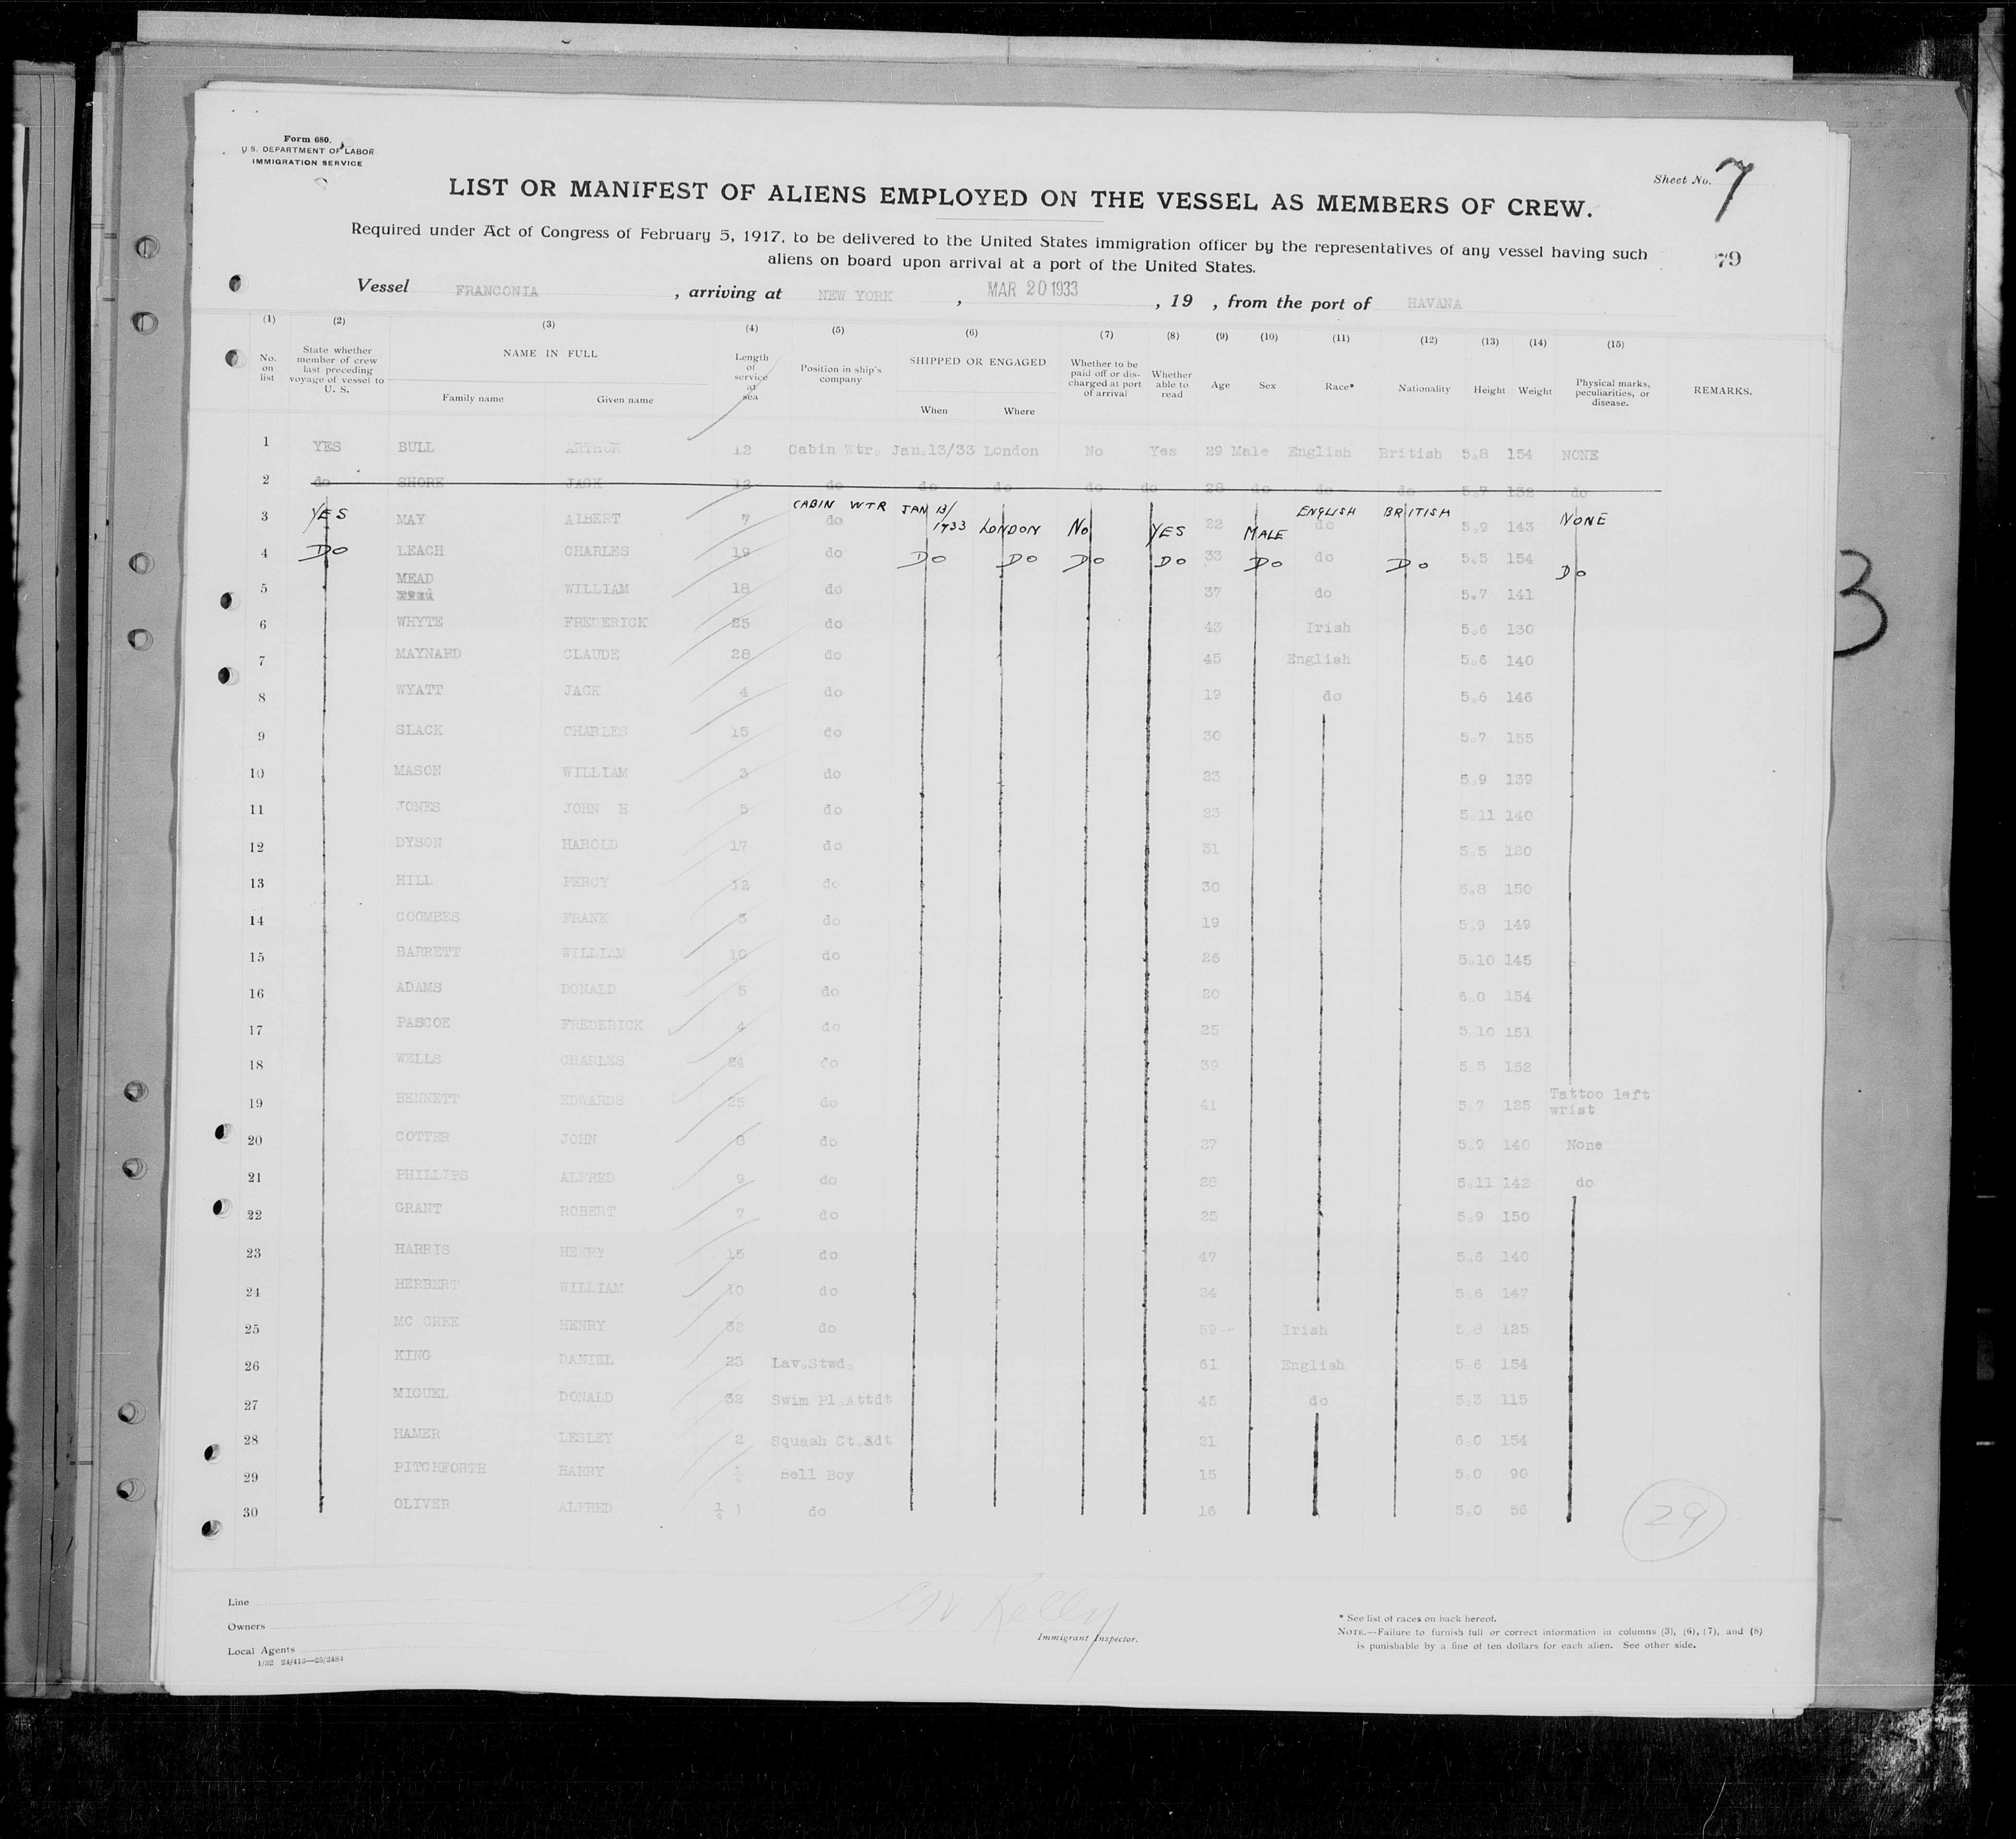 Form 680.
U.S. DEPARTMENT OF LABOR
IMMIGRATION SERVICE
Sheet No. 7
LIST OR MANIFEST OF ALIENS EMPLOYED ON THE VESSEL AS MEMBERS OF CREW.
Required under Act of Congress of February 5, 1917, to be delivered to the United States immigration officer by the representatives of any vessel having such
aliens on board upon arrival at a port of the United States.
79
Vessel FRANCONIA , arriving at NEW YORK , MAR 20 1933 , 19 , from the port of HAVANA
(1) (2) (3) (4) (5) (6) (7) (8) (9) (10) (11) (12) (13) (14) (15)
No. on list State whether member of crew last preceding voyage of vessel to U. S. NAME IN FULL Family name Given name Length of service at sea Position in ship's company SHIPPED OR ENGAGED When Where Whether to be paid off or discharged at port of arrival Whether able to read Age Sex Race* Nationality Height Weight Physical marks, peculiarities, or disease. REMARKS.
1 YES BULL ARTHUR 12 Cabin Wtr. Jan.13/33 London No Yes 29 Male English British 5.8 154 NONE
2 do SHORE JACK 12 do do do do do 28 do do do 5.7 132 do
3 YES MAY ALBERT 7 CABIN WTR do JAN 13/1933 LONDON No YES 22 MALE ENGLISH do BRITISH 5.9 143 NONE
4 Do LEACH CHARLES 19 do Do Do Do Do 33 Do do Do 5.5 154 Do
5 MEAD WILLIAM 18 do 37 do 5.7 141
6 WHYTE FREDERICK 25 do 43 Irish 5.6 130
7 MAYNARD CLAUDE 28 do 45 English 5.6 140
8 WYATT JACK 4 do 19 do 5.6 146
9 SLACK CHARLES 15 do 30 5.7 155
10 MASON WILLIAM 3 do 23 5.9 139
11 JONES JOHN H 5 do 23 5.11 140
12 DYSON HAROLD 17 do 31 5.5 120
13 HILL PERCY 12 do 30 5.8 150
14 COOMBES FRANK 3 do 19 5.9 149
15 BARRETT WILLIAM 10 do 26 5.10 145
16 ADAMS DONALD 5 do 20 6.0 154
17 PASCOE FREDERICK 4 do 25 5.10 151
18 WELLS CHARLES 24 do 39 5.5 152
19 BENNETT EDWARDS 25 do 41 5.7 125 Tattoo left wrist
20 COTTER JOHN 8 do 27 5.9 140 None
21 PHILLIPS ALFRED 9 do 28 5.11 142 do
22 GRANT ROBERT 7 do 25 5.9 150
23 HARRIS HENRY 15 do 47 5.6 140
24 HERBERT WILLIAM 10 do 24 5.6 147
25 MC CREE HENRY 32 do 59 Irish 5.8 125
26 KING DANIEL 23 Lav.Stwd. 61 English 5.6 154
27 MIGUEL DONALD 32 Swim Pl.Attdt 45 do 5.3 115
28 HAMER LESLEY 2 Squash Ct.Adt 21 6.0 154
29 PITCHFORTH HARRY Bell Boy 15 5.0 90
30 OLIVER ALFRED do 16 5.0 56
29
3
Line
Owners
Local Agents
1/32 24/413—25/2484
Kelly
Immigrant Inspector.
* See list of races on back hereof.
NOTE.—Failure to furnish full or correct information in columns (3), (6), (7), and (8)
is punishable by a fine of ten dollars for each alien. See other side.